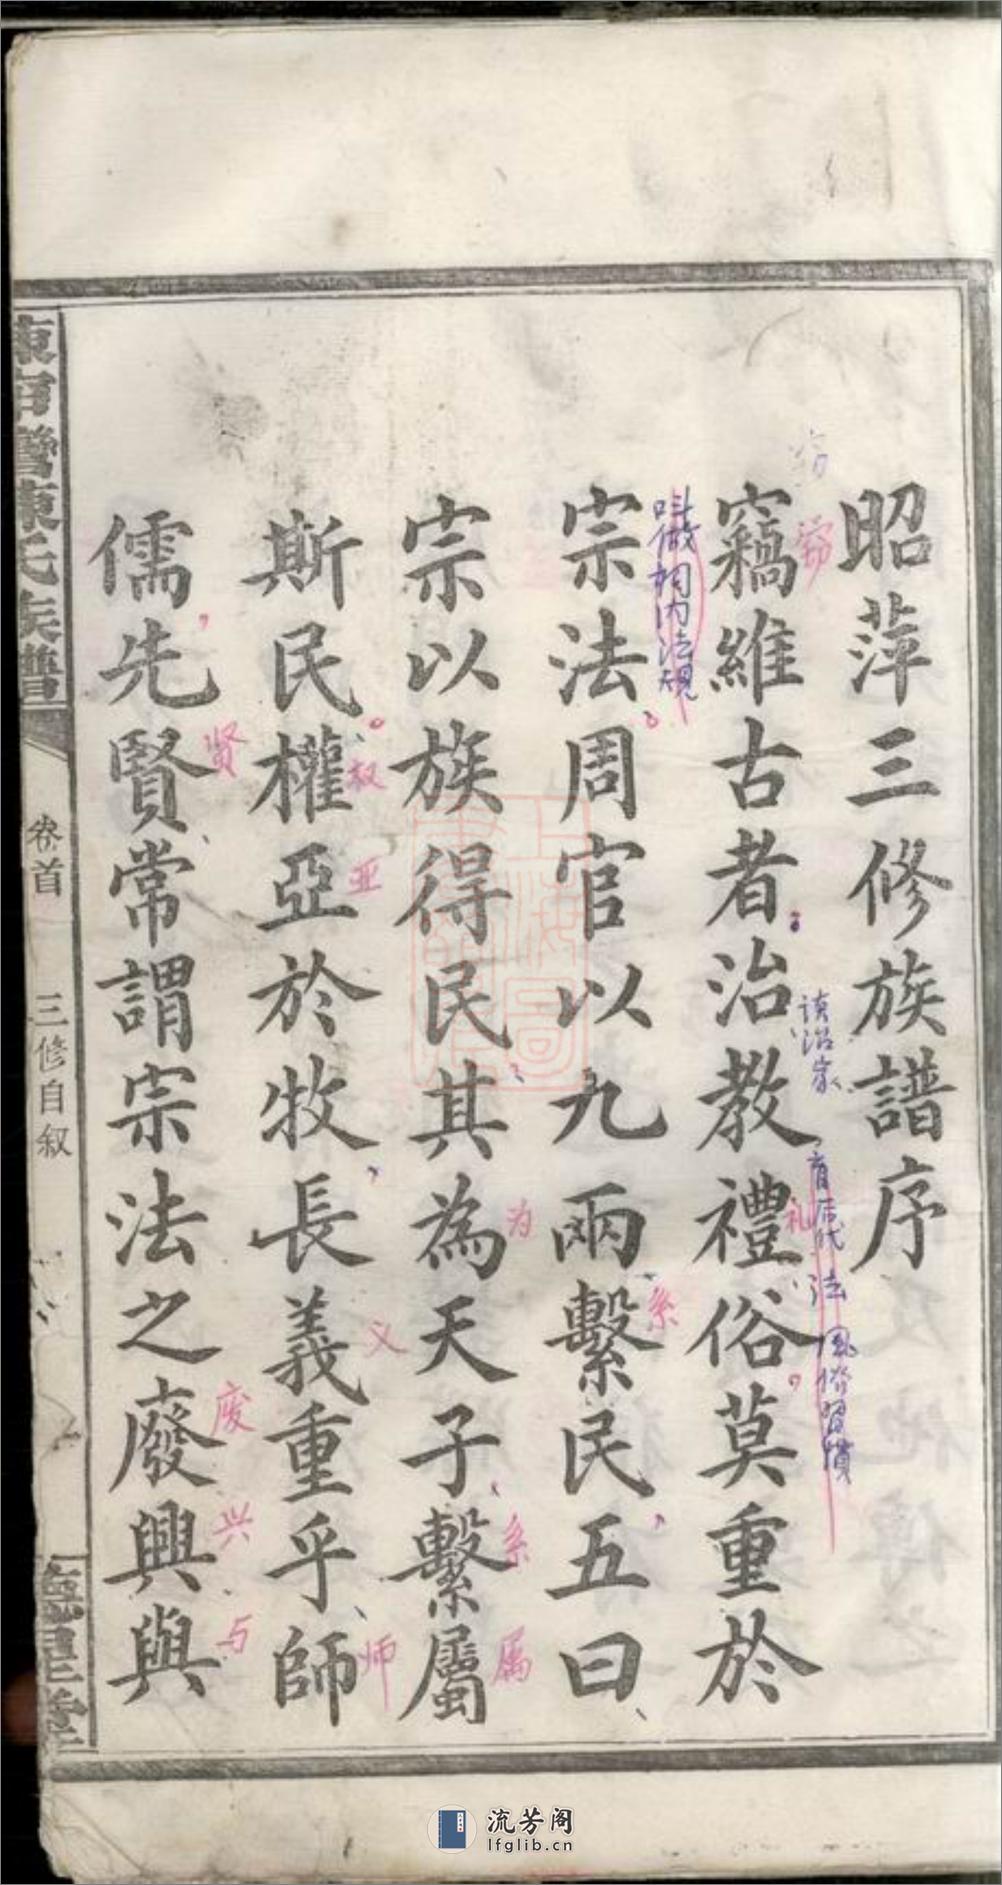 昭萍三修族譜序
竊維古者治教禮俗莫重於
宗法周官以九兩繫民五曰
宗以族得民其為天子繫屬
斯民權亞於牧長義重乎師
儒先賢常謂宗法之廢興與
卷首
三修自叙
窃
礼
风俗習慣
系
为
系
属
权
亚
义
师
贤
废
兴
与
流芳阁
lfglib.cn